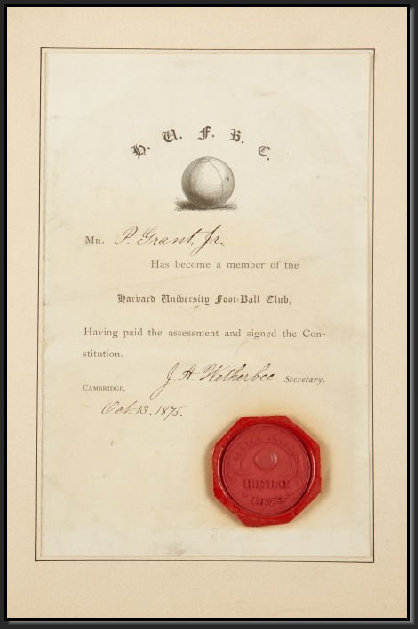 H. U. F. B. C.
MR. P. Grant, Jr.
Has become a member of the
Harvard University Foot-Ball Club,
Having paid the assessment and signed the Con-
stitution.
J. A. Wetherbee Secretary.
CAMBRIDGE.
Oct. 13. 1875.
1873